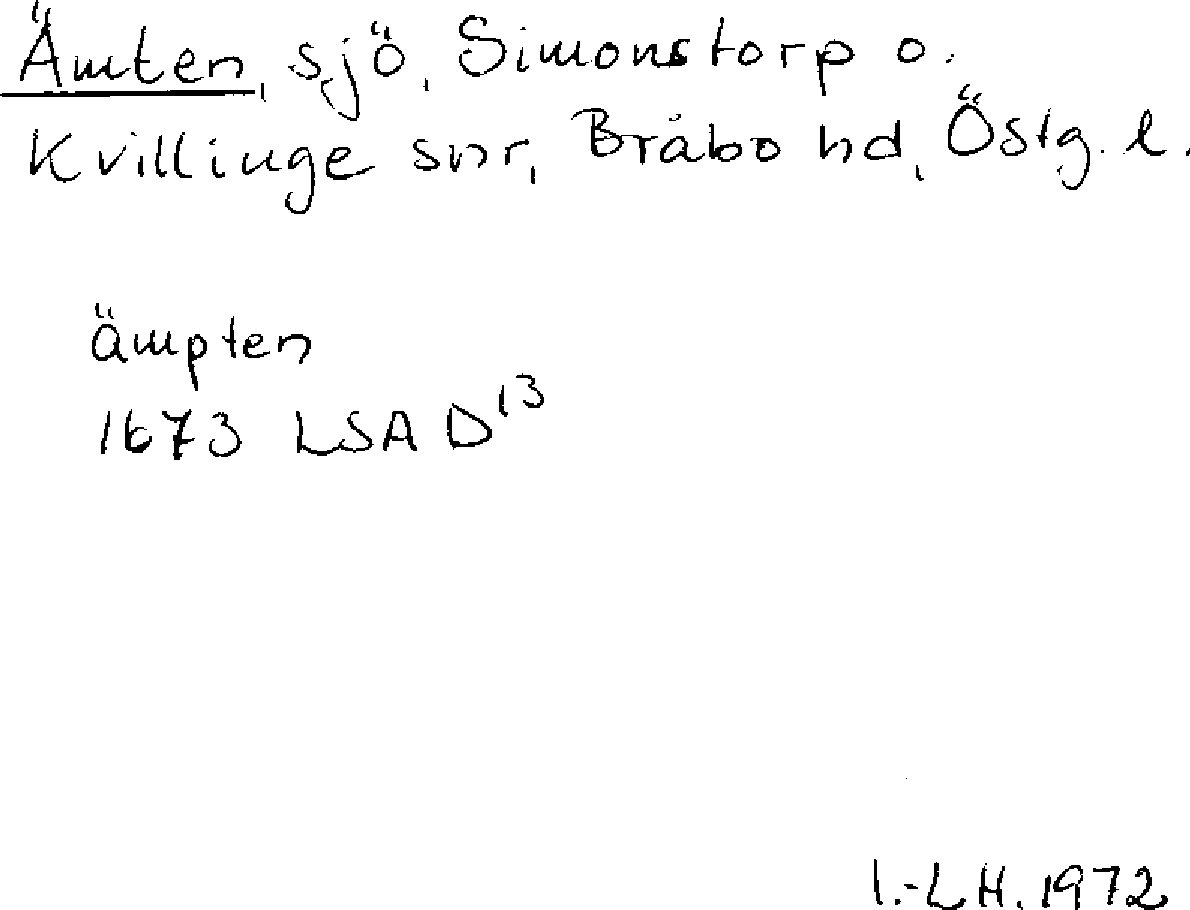 Ämten, sjö, Simonstorp o.
Kvillinge snr, Bråbo hd, Östg. l.
ämpten
1673 LSA D¹³
I.-L H. 1972